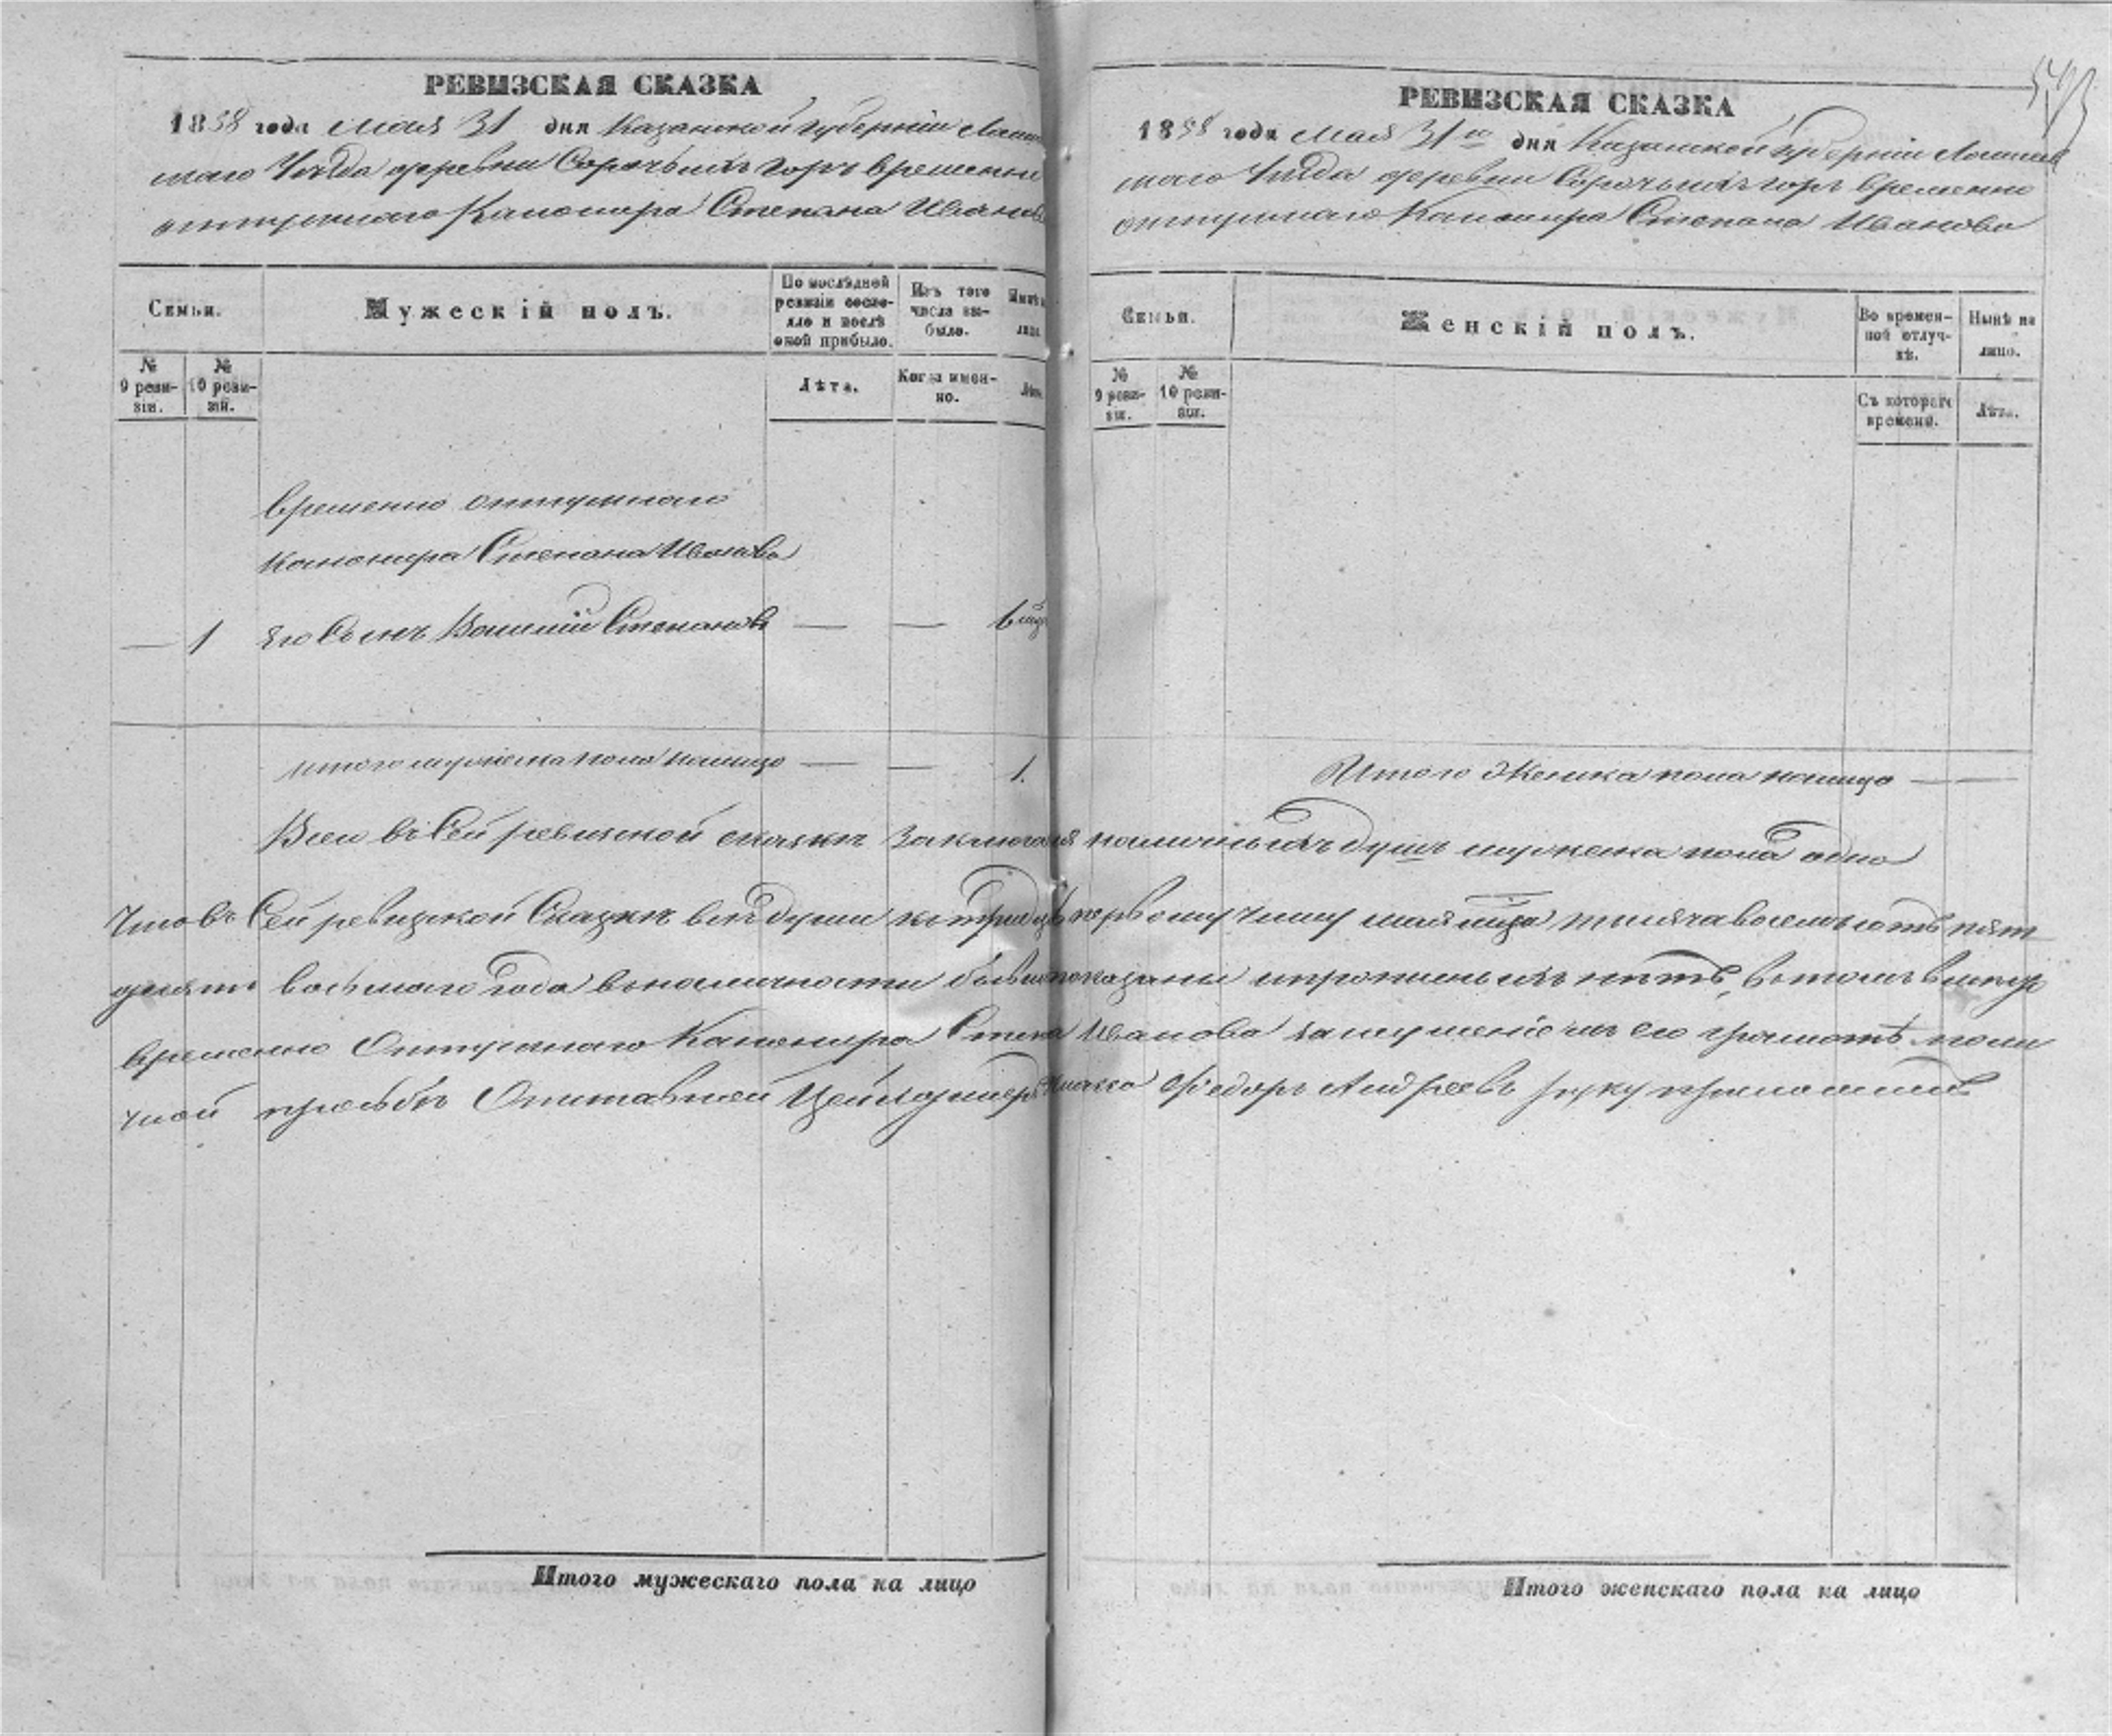 РЕВИЗСКАЯ СКАЗКА
1858 года Мая 31 дня Казанской губерніи Лаиш
скаго Уѣзда деревни Сорочьихъ горъ временно
отпускнаго Канонира Степана Иванова
Семьи.
Мужескій полъ.
По послѣдней ревизіи состояло и послѣ оной прибыло.
Изъ того числа выбыло.
Нынѣ
лицо.
№ 9 ревизіи.
№ 10 ревизіи.
Лѣта.
Когда именно.
Лѣта.
временно отпускнаго
канонира Степана Иванова
— 1 Его Сынъ Василій Степановъ — — 6
итого мужеска пола налицо — — 1.
РЕВИЗСКАЯ СКАЗКА
1858 года Мая 31го дня Казанской губерніи Лаишев
скаго Уѣзда деревни Сорочьихъ горъ временно
отпускнаго Канонира Степана Иванова
Семьи.
Женскій полъ.
Во временной отлучкѣ.
Нынѣ на лицо.
№ 9 ревизіи.
№ 10 ревизіи.
Съ котораго времени.
Лѣта.
Итого Женска пола налицо —
Всего въ Сей ревизской сказкѣ наличныхъ душъ мужеска пола одна
Что въ Сей ревизской Сказкѣ всѣ души къ тридцать первому числу мая тысяча восемьсотъ пят
десятъ восьмаго года въ наличности бывшіе показаны и прописныхъ нѣтъ, въ томъ вместо
временно Отпускнаго Канонира Степана Иванова за неумѣніемъ его грамотѣ по лич
ной прозьбѣ Отставной Федоръ Андреевъ руку приложилъ
Итого мужескаго пола на лицо
Итого женскаго пола на лицо